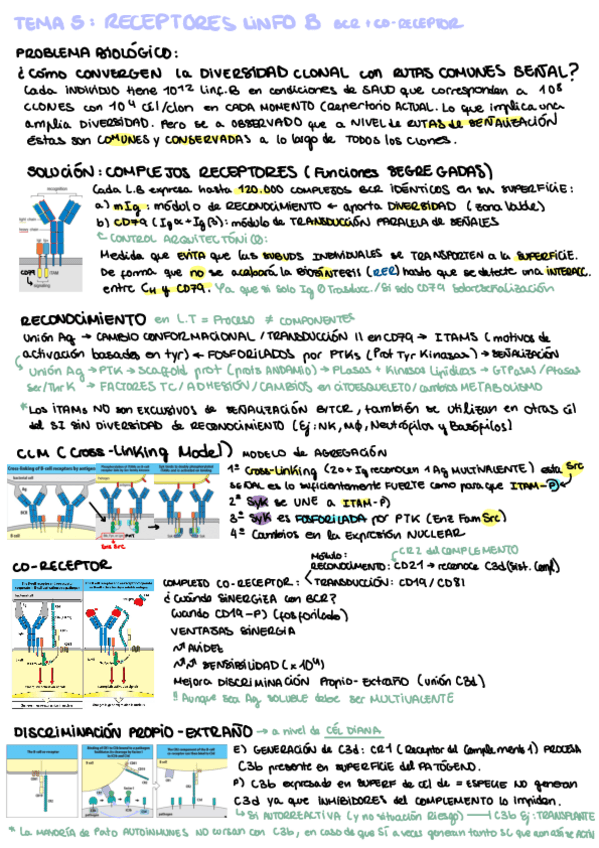 TEMA 5: RECEPTORES LINFO B BCR + CO-RECEPTOR
PROBLEMA BIOLÓGICO:
¿CÓMO CONVERGEN la DIVERSIDAD CLONAL con RUTAS COMUNES SEÑAL?
Cada INDIVIDUO tiene 10¹² linf.B en condiciones de SALUD que corresponden a 10⁸
CLONES con 10⁴ cél/clon en CADA MOMENTO (repertorio ACTUAL. Lo que implica una
amplia DIVERSIDAD. Pero se a OBSERVADO que a NIVEL de RUTAS de SEÑALIZACIÓN
éstas son COMUNES y CONSERVADAS a lo largo de TODOS los Clones.
SOLUCIÓN: COMPLEJOS RECEPTORES (Funciones SEGREGADAS)
Cada L.B expresa hasta 120.000 COMPLEJOS BCR IDÉNTICOS EN SU SUPERFICIE:
a) mIg: módulo de RECONOCIMIENTO ← aporta DIVERSIDAD
b) CD79 (Igα + Igβ): módulo de TRANSDUCCIÓN PARALELA DE SEÑALES
CONTROL ARQUITECTÓNICO:
Medida que EVITA que las SUBUDS INDIVIDUALES se TRANSPORTEN a la SUPERFICIE.
De forma que no se acabará la BIOSÍNTESIS (RER) hasta que se detecte una INTERACC.
entre CH y CD79. Ya que si solo Ig Ø Trasducc./Si solo CD79 Sobreseñalización
recognition
light chain
heavy chain
CD79
signaling
RECONOCIMIENTO en L.T = Proceso ≠ COMPONENTES
Unión Ag → CAMBIO CONFORMACIONAL / TRANSDUCCIÓN || en CD79 → ITAMS (motivos de
activación basados en tyr) ← FOSFORILADOS por PTKs (Prot Tyr Kinasas) → SEÑALIZACIÓN
Unión Ag → PTK → Scaffold prot (prots ANDAMIO) → PLasas + Kinasas Lipídicas → GTPasas / Atasas
Ser/Thr K → FACTORES TC / ADHESIÓN / CAMBIOS en CITOESQUELETO / cambios METABOLISMO
*Los ITAMs NO son EXCLUSIVOS de SEÑALIZACIÓN BITCR, también se utilizan en otras cél
del SI SIN DIVERSIDAD DE RECONOCIMIENTO (Ej: NK, MΦ, Neutófilos y Basófilos)
CLM (Cross-Linking Model) MODELO DE AGREGACIÓN
Cross-linking of B-cell receptors by antigen
bacterial cell
Ag
BCR
B cell
Enz Src
1º Cross-Linking (2 o + Ig reconocen 1 Ag MULTIVALENTE) esta Src
SEÑAL es lo suficientemente FUERTE como para que ITAM-P
2º Syk SE UNE a ITAM-P
3º Syk es FOSFORILADA por PTK (Enz Fam Src)
4º Cambios en la EXPRESIÓN NUCLEAR
CO-RECEPTOR
COMPLEJO CO-RECEPTOR:
Módulo:
CR2 del COMPLEMENTO
RECONOCIMIENTO: CD21 → reconoce C3d (Sist. Compl)
TRANSDUCCIÓN: CD19 / CD81
¿CUÁNDO SINERGIZA con BCR?
Cuando CD19-P) (fosforilado)
VENTAJAS SINERGIA
↑↑ AVIDEZ
↑↑ SENSIBILIDAD (x10⁴)
Mejora DISCRIMINACIÓN Propio-Extraño (unión C3d)
!! Aunque sea Ag SOLUBLE debe ser MULTIVALENTE
DISCRIMINACIÓN PROPIO-EXTRAÑO → a nivel de CÉL DIANA
The B-cell co-receptor
B cell
E) GENERACIÓN de C3d: CR1 (Receptor del Complemento 1) PROCESA
C3b presente en SUPERFICIE DEL PATÓGENO.
P) C3b expresado en SUPERF de cél de = ESPECIE NO generan
C3d ya que INHIBIDORES del COMPLEMENTO lo impiden.
↳ Si AUTORREACTIVA (y no situación Riesgo) ⊣ C3b Ej: TRANSPLANTE
* La MAYORÍA de Pato AUTOINMUNES NO cursan con C3b, en caso de que SÍ a veces generan tanto